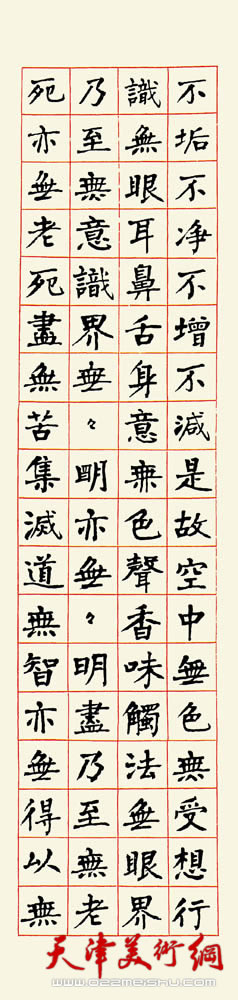 不垢不净不增不減是故空中無色無受想行
識無眼耳鼻舌身意無色聲香味觸法無眼界
乃至無意識界無々明亦無々明盡乃至無老
死亦無老死盡無苦集滅道無智亦無得以無
天津美術網
www.022meishu.com